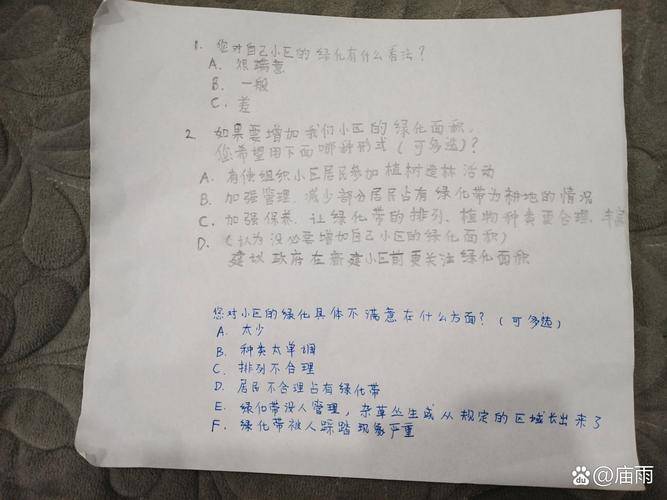 1. 您对自己小区的绿化有什么看法？
A. 很满意
B. 一般
C. 差
2. 如果要增加我们小区的绿化面积，
您希望用下面哪种形式（可多选）？
A. 有偿组织小区居民参加植树造林活动
B. 加强管理，减少部分居民占有绿化带为耕地的情况
C. 加强保养，让绿化带的排列、植物种类更合理、丰富
D. （认为没必要增加自己小区的绿化面积）
建议政府在新建小区前更关注绿化面积
您对小区的绿化具体不满意在什么方面？（可多选）
A. 太少
B. 种类太单调
C. 排列不合理
D. 居民不合理占有绿化带
E. 绿化带没人管理，杂草丛生或从规定的区域长出来了
F. 绿化带被人踩踏现象严重
Baidu百科@庙雨